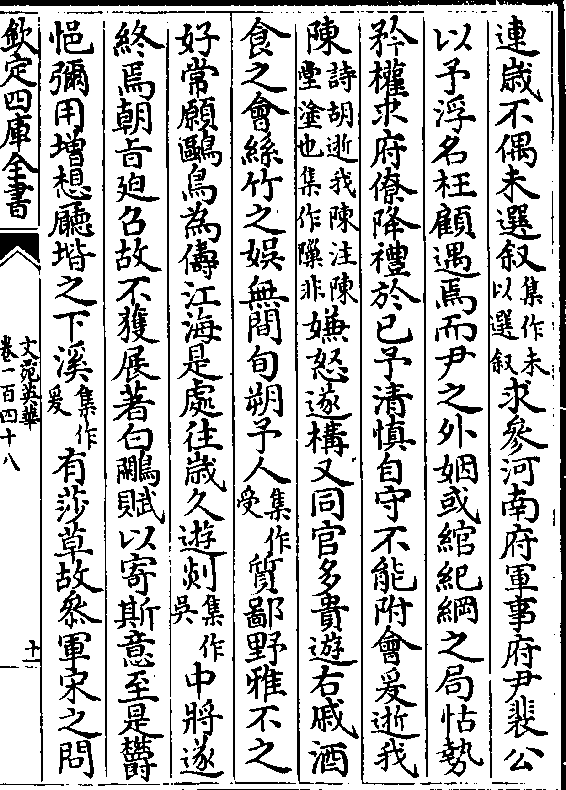 連嵗不偶未選叙集作未以選叙求參河南府軍事府尹裴公
以予浮名枉顧遇焉而尹之外姻或綰紀綱之局怙勢
矜權求府僚降禮於已予清慎自守不能附會爰逝我
陳詩胡逝我陳注陳堂塗也集作隟非嫌怒遂構又同官多貴遊右戚酒
食之會絲竹之娛無間旬朔予人集作受質鄙野雅不之
好常願鷗鳥為儔江海是處往嵗久遊剡集作吳中將遂
終焉朝㫖廹召故不獲展著白鷳賦以寄斯意至是欝
悒彌用增想廳堦之下溪集作爰有莎草故叅軍宋之問
欽定四庫全書
文苑英華
卷一百四十八
十一